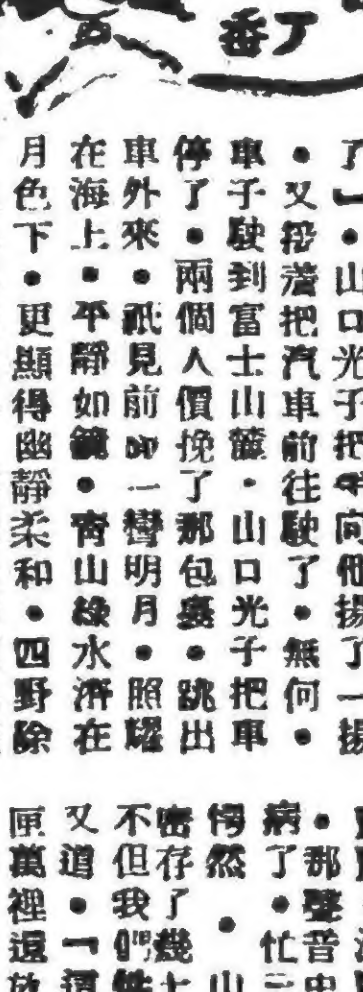 番了
了」。山口光子把手向他揚了一揚
。又發着把汽車前往駛了。無何。
車子駛到富士山麓。山口光子把車
停了。兩個人便挽了那包裹。跳出
車外來。祇見前面一彎明月。照耀
在海上。平靜如鏡。青山綠水。浴在
月色下。更顯得幽靜柔和。四野除
。那聲音
病了。忙
愕然。山
密存了幾
不但我們
又道。「這
匣萬裡還放